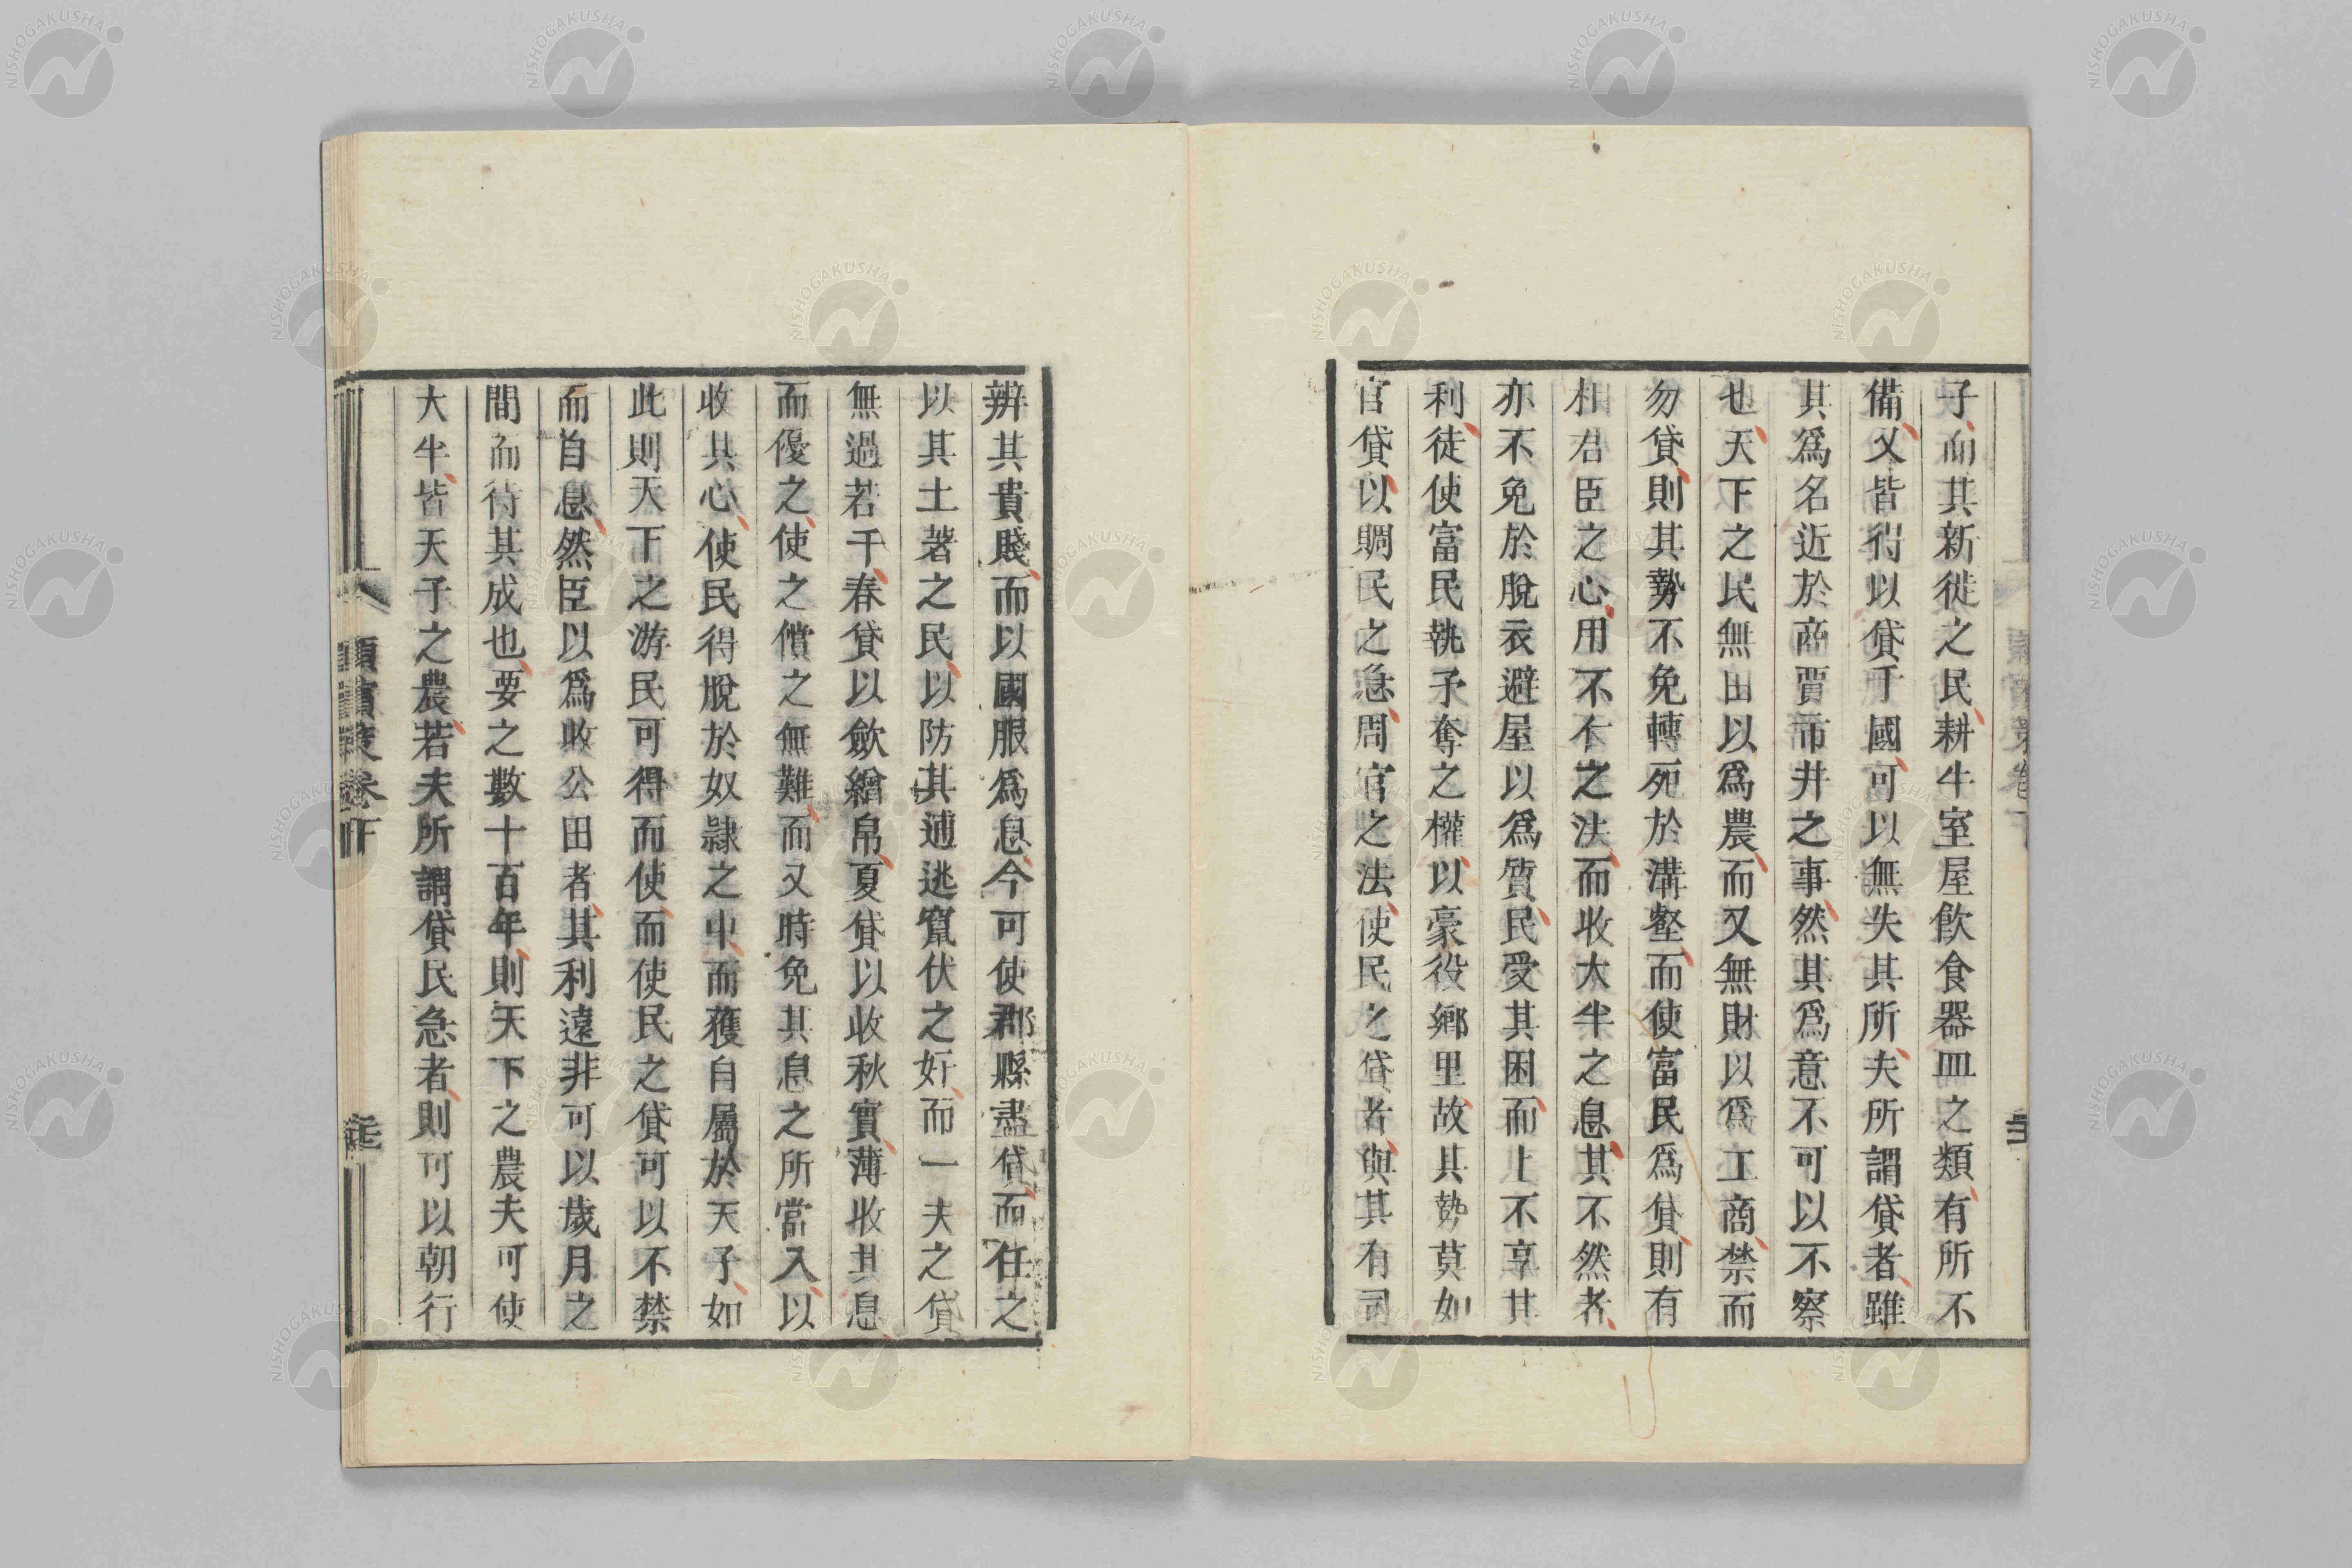 子而其新徙之民耕牛室屋飲食器皿之類有所不
備又皆得以貸于國可以無失其所夫所謂貸者雖
其爲名近於商賈市井之事然其爲意不可以不察
也天下之民無田以爲農而又無財以爲工商禁而
勿貸則其勢不免轉死於溝壑而使富民爲貸則有
相君臣之心用不仁之法而收大半之息其不然者
亦不免於脫衣避屋以爲質民受其困而上不享其
利徒使富民執予奪之權以豪役鄉里故其勢莫如
官貸以賙民之急周官之法使民之貸者與其有司
辨其貴賤而以國服爲息今可使郡縣盡貸而任之
以其土著之民以防其逋逃竄伏之奸而一夫之貸
無過若干春貸以斂繒帛夏貸以收秋實薄收其息
而優之使之償之無難而又時免其息之所當入以
收其心使民得脫於奴隷之中而獲自屬於天子如
此則天下之游民可得而使而使民之貸可以不禁
而自息然臣以爲收公田者其利遠非可以歲月之
間而待其成也要之數十百年則天下之農夫可使
大半皆天子之農若夫所謂貸民急者則可以朝行
潁濱策卷下
NISHOGAKUSHA